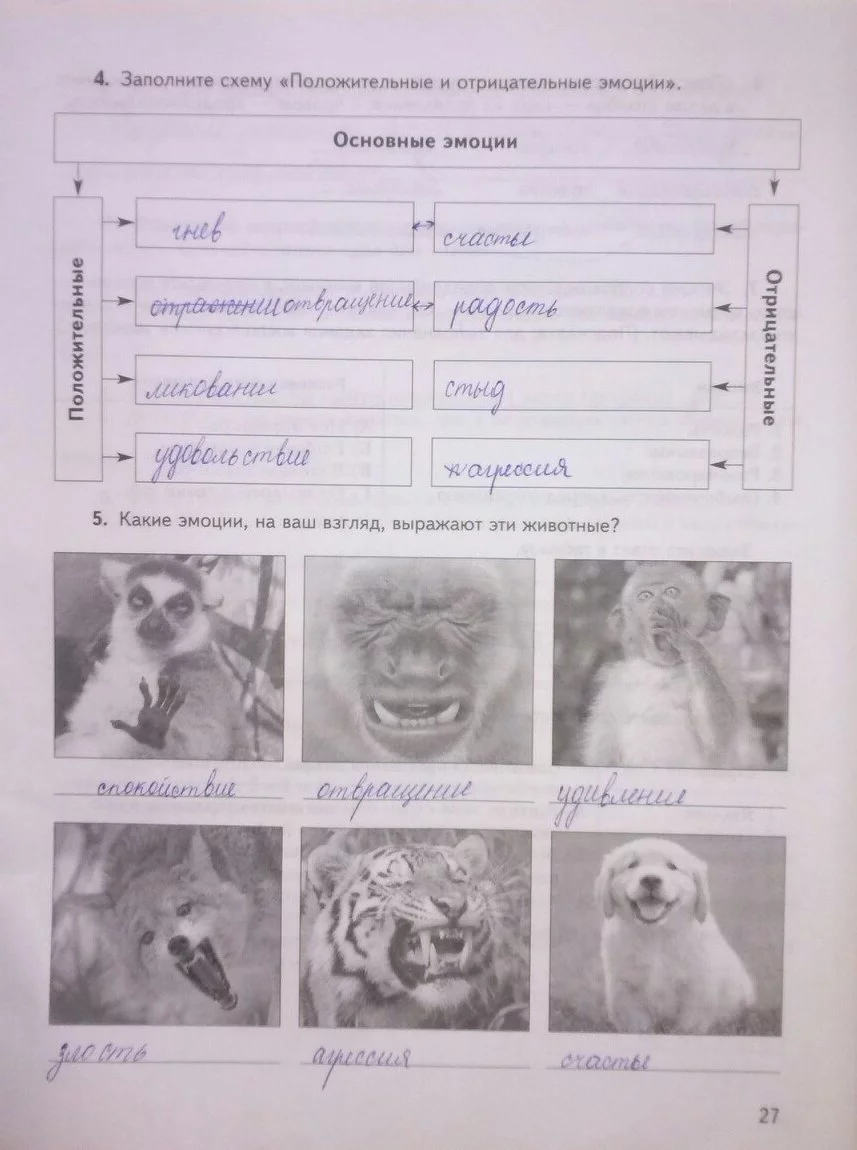 4. Заполните схему «Положительные и отрицательные эмоции».
Основные эмоции
Положительные
Отрицательные
гнев ↔ счастье
отвращение ↔ радость
ликование стыд
удовольствие агрессия
5. Какие эмоции, на ваш взгляд, выражают эти животные?
спокойствие отвращение удивление
злость агрессия счастье
27